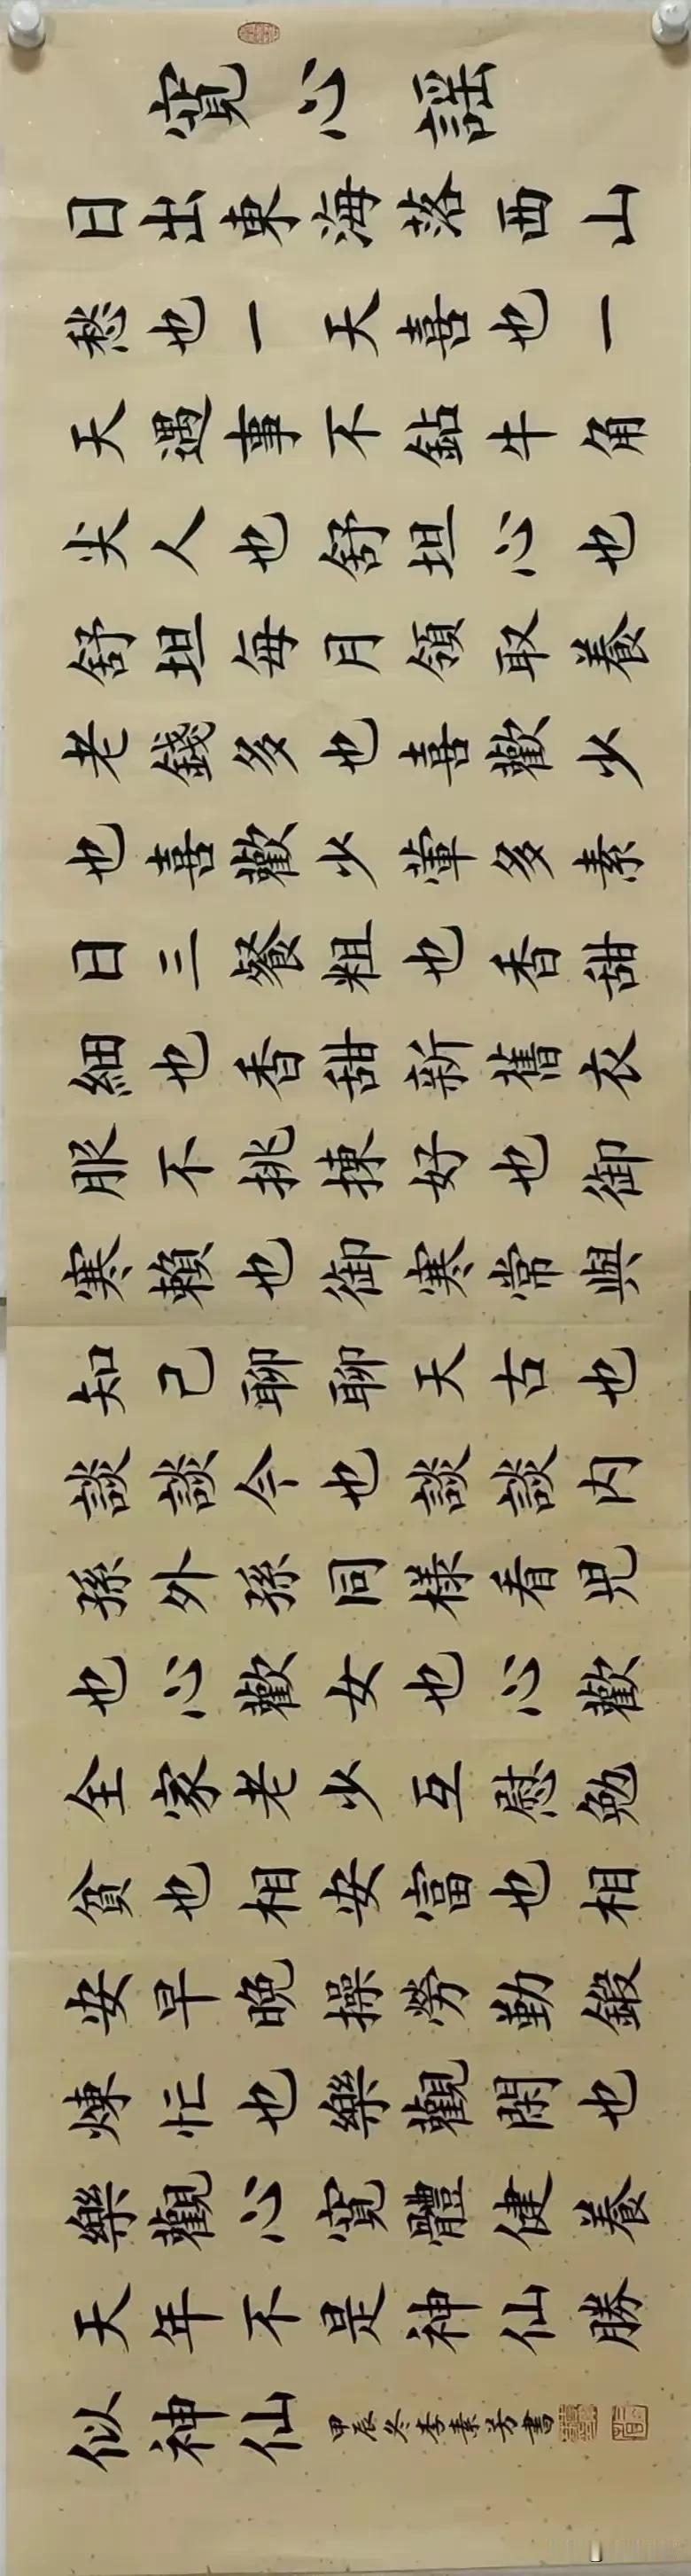 寬心謠
日出東海落西山
愁也一天喜也一
天遇事不鉆牛角
尖人也舒坦心也
舒坦每月領取養
老錢多也喜歡少
也喜歡少葷多素
日三餐粗也香甜
細也香甜新舊衣
服不挑揀好也御
寒賴也御寒常與
知己聊聊天古也
談談今也談談内
孫外孫同樣看兒
也心歡女也心歡
全家老少互慰勉
貧也相安富也相
安早晚操勞勤鍛
煉忙也樂觀閑也
樂觀心寬體健養
天年不是神仙勝
似神仙
甲辰冬李素芳書